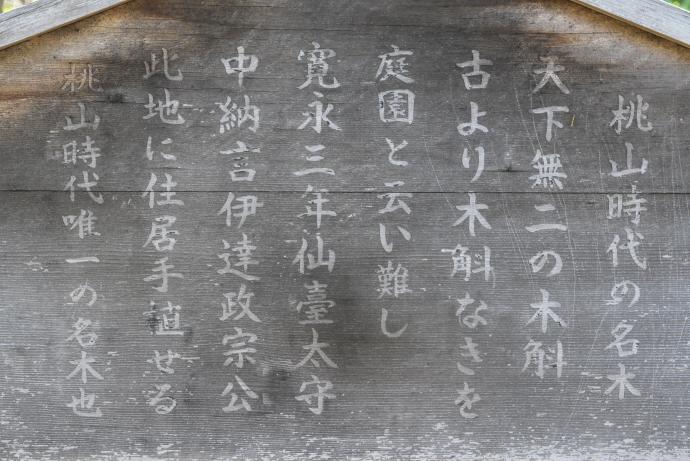 桃山時代の名木
天下無二の木斛
古より木斛なきを
庭園と云い難し
寛永三年仙臺太守
中納言伊達政宗公
此地に住居手植せる
桃山時代唯一の名木也